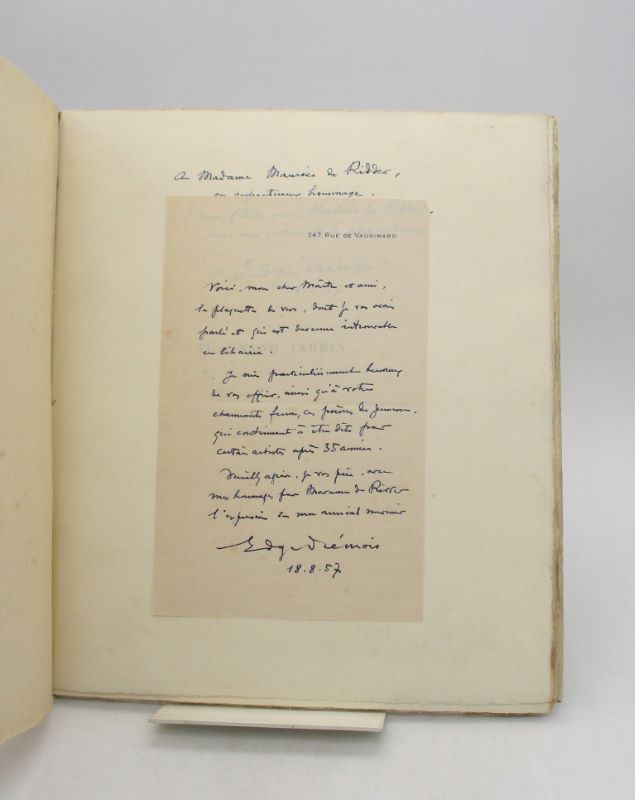 A Madame Maurice de Ridder,
en respectueux hommage.
247 RUE DE VAUGIRARD
Voici, mon cher Maître et ami,
la plaquette de vers, dont je vous avais
parlé et qui est devenue introuvable
en librairie.
JARDIN
Je suis particulièrement heureux
de vous offrir, ainsi qu'à votre
charmante femme, ces poèmes de jeunesse,
qui continuent à être dits par
certains artistes après 35 années.
Veuillez agréer, je vous prie, avec
mes hommages pour Madame de Ridder
l'expression de mon amical souvenir
18.8.57